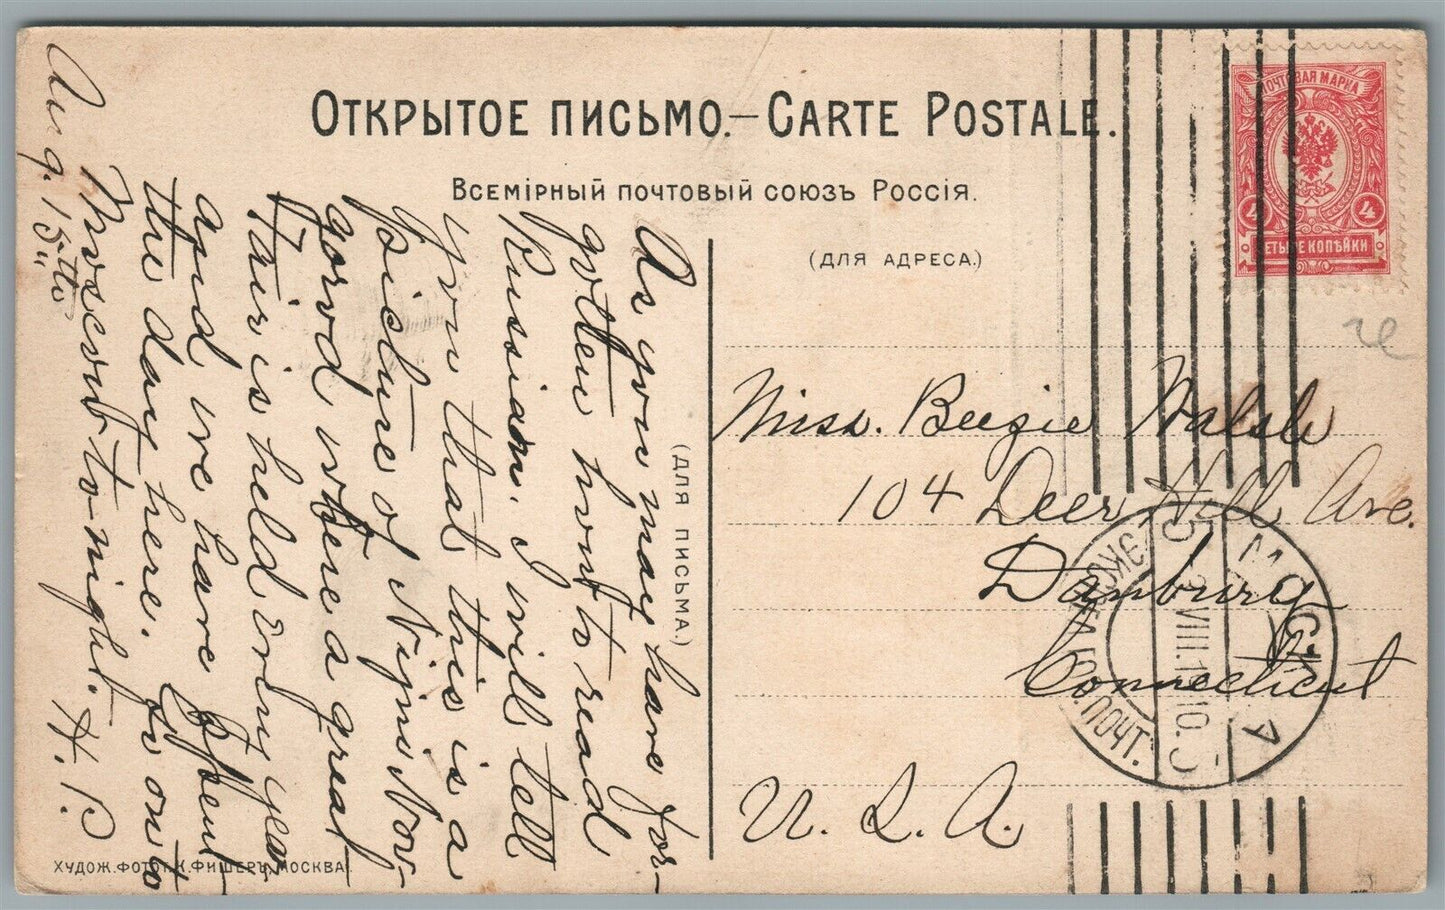 Открытое письмо.—Carte Postale.
Всемірный почтовый союзъ Россія.
(для адреса.)
ПОЧТОВАЯ МАРКА
4 4
ЧЕТЫРЕ КОПѢЙКИ
Miss. Beezie Walsh
104 Deer Hill Ave.
Danbury
Connecticut
U. S. A.
(для письма.)
As you may have for-
gotten how to read
Russian. I will tell
you that this is a
picture of Nijni Nov-
gorod where a great
Fair is held every year
and we have spent
the day here. Go on to
Moscow to-night. H. P.
Aug. 15th
МОСКВА
VIII.1910.
ПОЧТ.
Худож. фотот. К. Фишеръ, Москва.